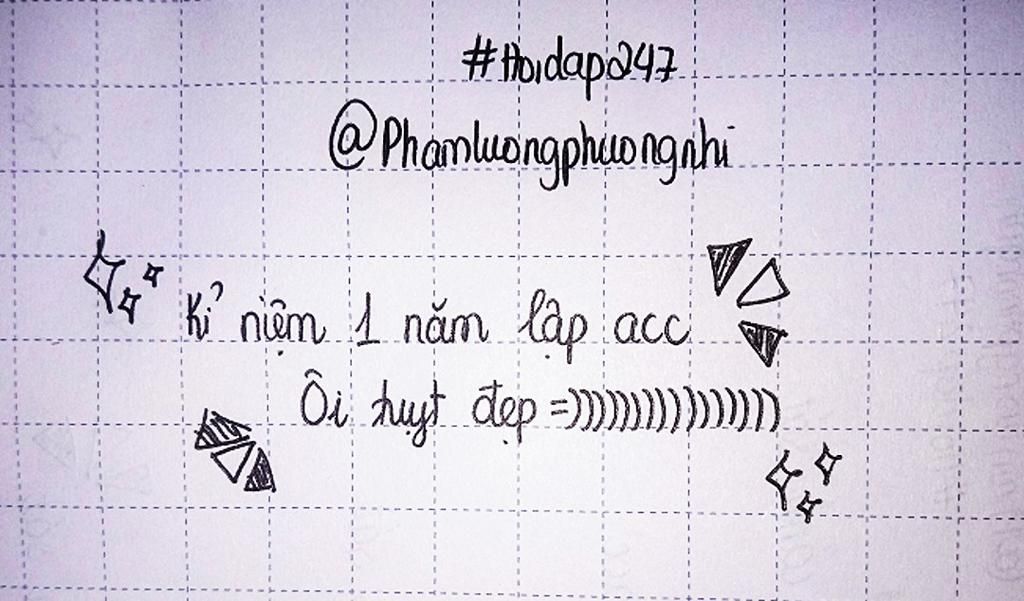 #Hoidap247
@Phamluongphuongnhi
Kỉ niệm 1 năm lập acc
Ôi tuyệt đẹp =))))))))))))))